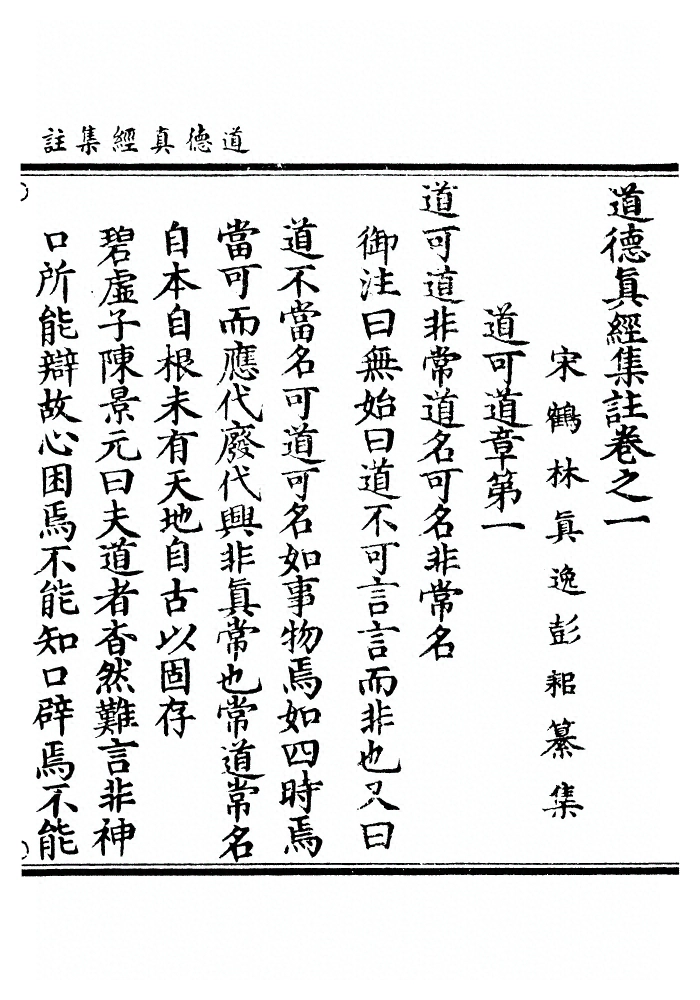 道德真經集註
道德眞經集註卷之一
宋鶴林眞逸彭耜纂集
道可道章第一
道可道非常道名可名非常名
御注曰無始曰道不可言言而非也又曰
道不當名可道可名如事物焉如四時焉
當可而應代廢代興非眞常也常道常名
自本自根未有天地自古以固存
碧虛子陳景元曰夫道者杳然難言非神
口所能辯故心困焉不能知口辟焉不能